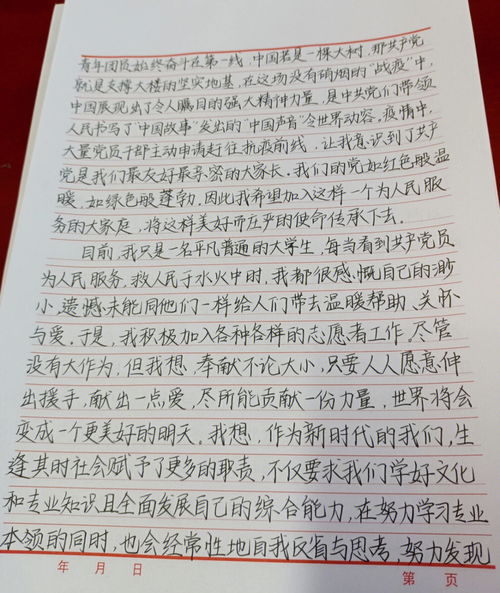 青年团员始终奋斗在第一线,中国若是一棵大树,那共产党
就是支撑大楼的坚实地基,在这场没有硝烟的“战疫”中,
中国展现出了令人瞩目的强大精神力量,是中共党们带领
人民书写了“中国故事”发出的“中国声音”令世界动容。疫情中,
大量党员干部主动申请赴往抗疫前线,让我意识到了共产
党是我们最友好最亲密的大家长。我们的党如红色般温
暖、如绿色般蓬勃,因此我希望加入这样一个为人民服
务的大家庭,将这样美好而庄严的使命传承下去。
目前,我只是一名平凡普通的大学生,每当看到共产党员
为人民服务,救人民于水火中时,我都很感慨自己的渺
小,遗憾未能同他们一样给人们带去温暖帮助、关怀
与爱。于是,我积极加入各种各样的志愿者工作。尽管
没有大作为,但我想,奉献不论大小,只要人人愿意伸
出援手,献出一点爱,尽所能贡献一份力量,世界将会
变成一个更美好的明天。我想,作为新时代的我们,生
逢其时社会赋予了更多的职责,不仅要求我们学好文化
和专业知识且全面发展自己的综合能力,在努力学习专业
本领的同时,也会经常性地自我反省与思考,努力发现
年 月 日 第 页